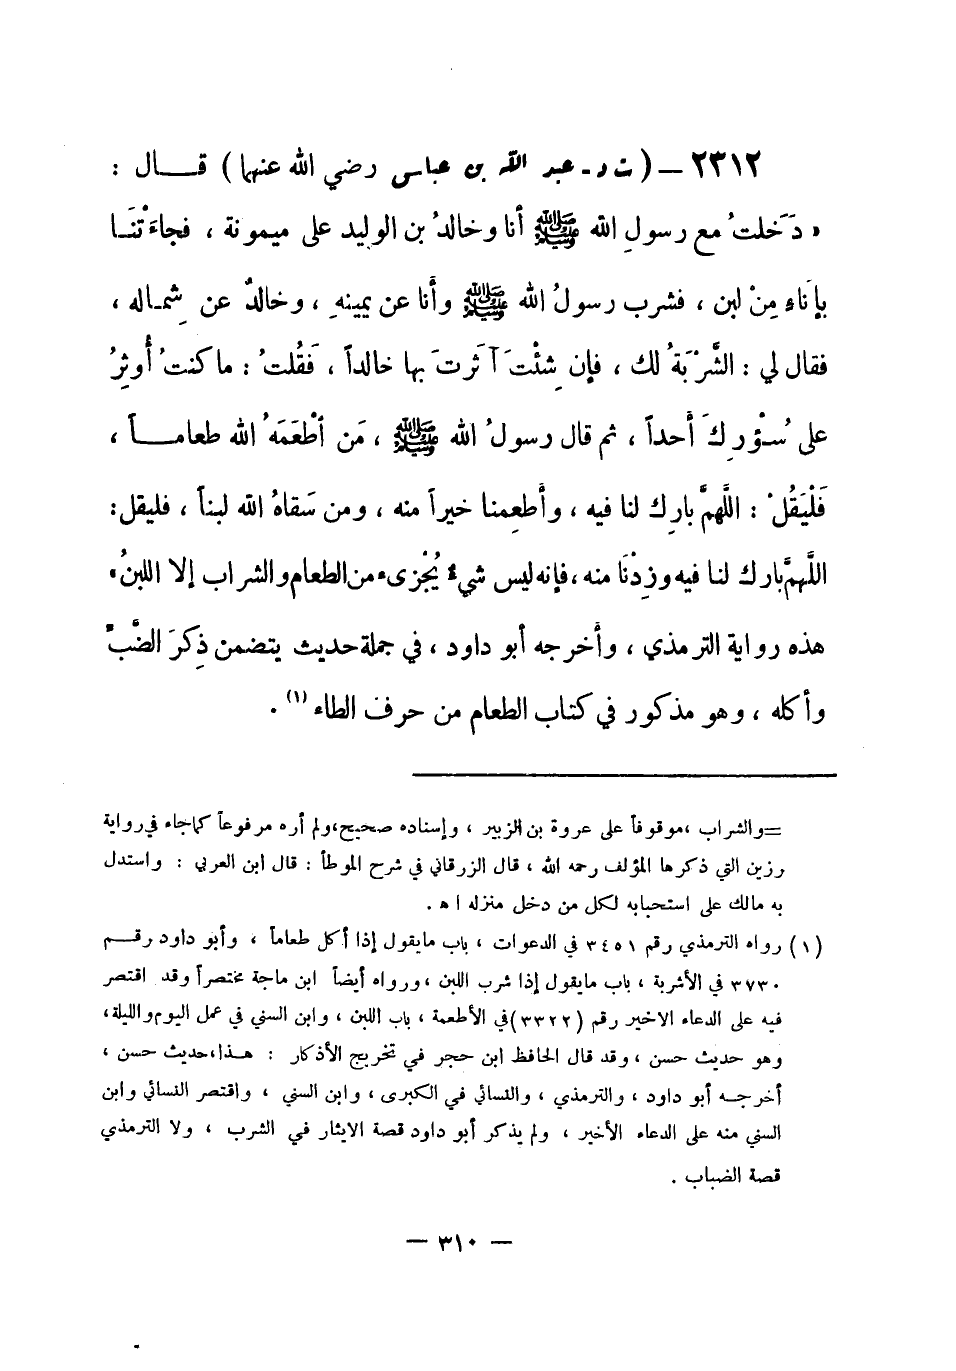 ٢٣١٢ – ( ت د - عبد الله بن عباس رضي الله عنهما ) قـــال :
« دَخَلتُ مع رسولِ الله ﷺ أنا وخالدُ بن الوليد على ميمونة ، فجاءَتْنَـا
بإنَاءٍ مِنْ لبن ، فشرب رسولُ الله ﷺ وأنا عن يمينهِ ، وخالدٌ عن شِمـاله ،
فقال لي : الشَّرْبَةُ لك ، فإن شِئْتَ آثَرتَ بها خالداً ، فَقُلتُ : ما كنتُ أُوثِرُ
على سُـؤْرِكَ أَحداً ، ثم قال رسولُ الله ﷺ ، مَن أطْعَمَهُ الله طعامــاً ،
فَلْيَقُلْ : اللَّهمَّ بارِك لنا فيه ، وأَطعِمنا خيراً منه ، ومن سَقاهُ الله لبناً ، فليقل :
اللَّهمَّ بارك لنـا فيه وزِدْنَا منه ، فإنه ليس شيءٌ يُجْزىء من الطعام والشراب إلا اللبنُ »
هذه رواية الترمذي ، وأَخرجه أبو داود ، في جملة حديث يتضمن ذِكرَ الضَّبِّ
وأكله ، وهو مذكور في كتاب الطعام من حرف الطاء (١) .
=والشراب ،موقوفاً على عروة بن الزبير ، وإسناده صحيح،ولم أره مرفوعاً كماجاء في رواية
رزين التي ذكرها المؤلف رحمه الله ، قال الزرقاني في شرح الموطأ : قال ابن العربي : واستدل
به مالك على استحبابه لكل من دخل منزله ا ه .
(١) رواه الترمذي رقم ٣٤٥١ في الدعوات ، باب مايقول إذا أكل طعاماً ، وأبو داود رقــم
٣٧٣٠ في الأشربة ، باب مايقول إذا شرب اللبن ،ورواه أيضاً ابن ماجة مختصراً وقد اقتصر
فيه على الدعاء الاخير رقم (٣٣٢٢)في الأطعمة ، باب اللبن ، وابن السني في عمل اليوم والليلة،
وهو حديث حسن ، وقد قال الحافظ ابن حجر في تخريج الأذكار : هـذا،حديث حسن ،
أخرجـه أبو داود ، والترمذي ، والنسائي في الكبرى ، وابن السني ، واقتصر النسائي وابن
السني منه على الدعاء الأخير ، ولم يذكر أبو داود قصة الايثار في الشرب ، ولا الترمذي
قصة الضباب .
– ٣١٠ –